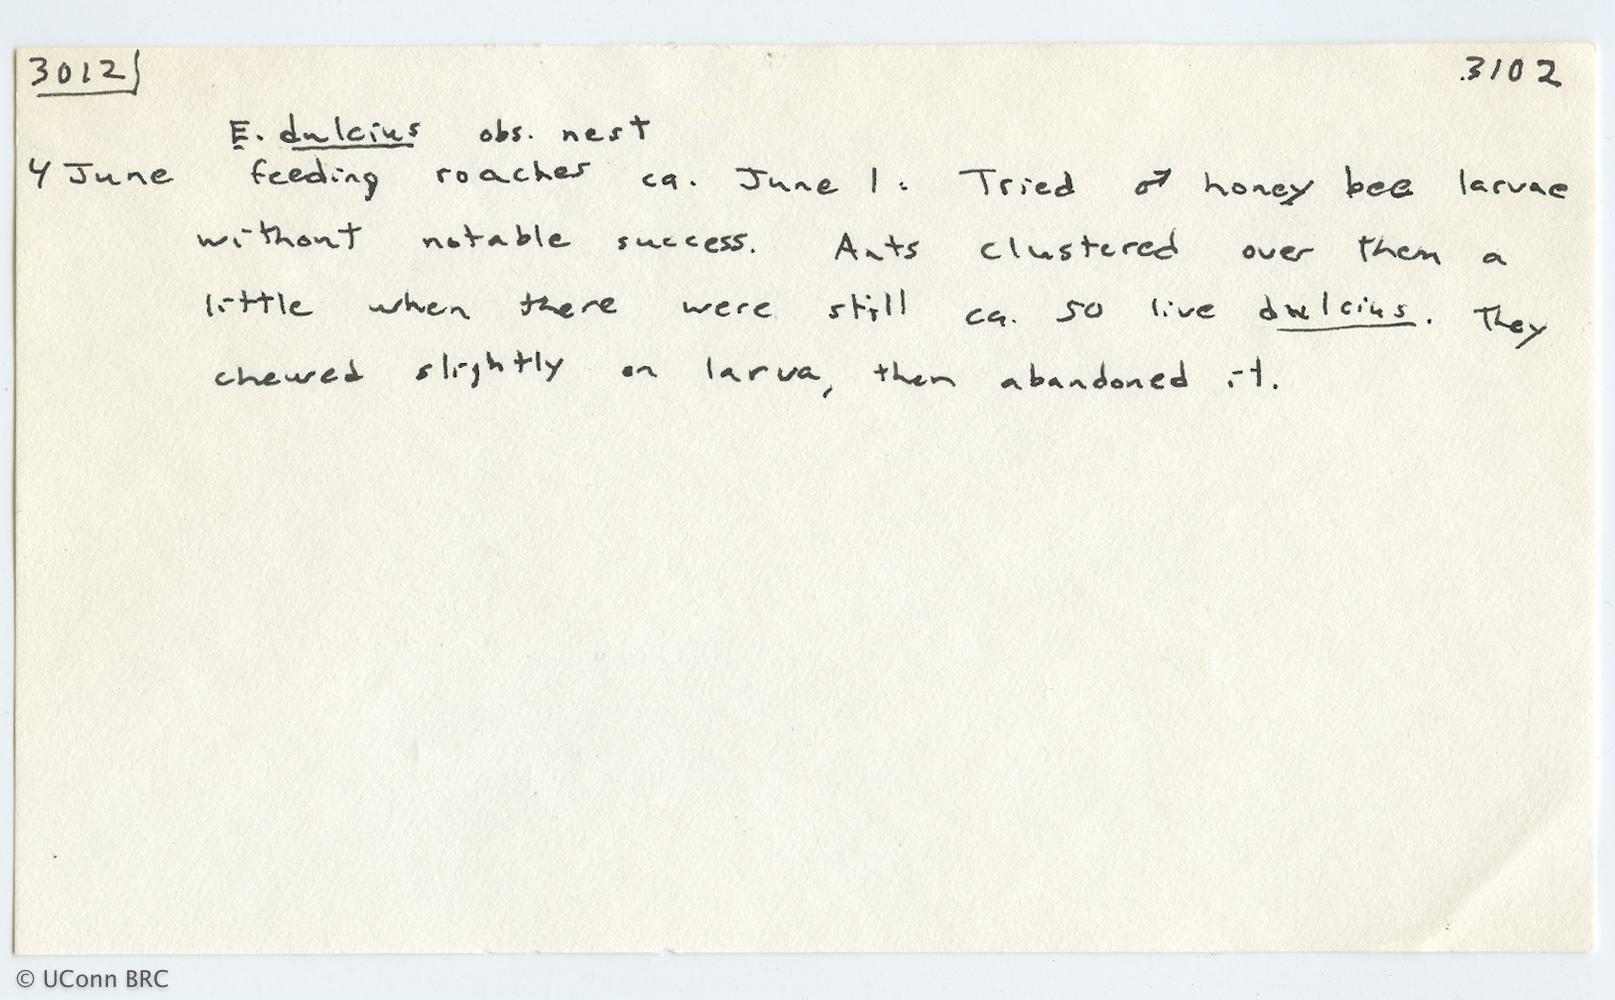 3012 3102
E. dulcius obs. nest
4 June feeding roaches ca. June 1: Tried ♂ honey bee larvae
without notable success. Ants clustered over them a
little when there were still ca. 50 live dulcius. They
chewed slightly on larva, then abandoned it.
© UConn BRC